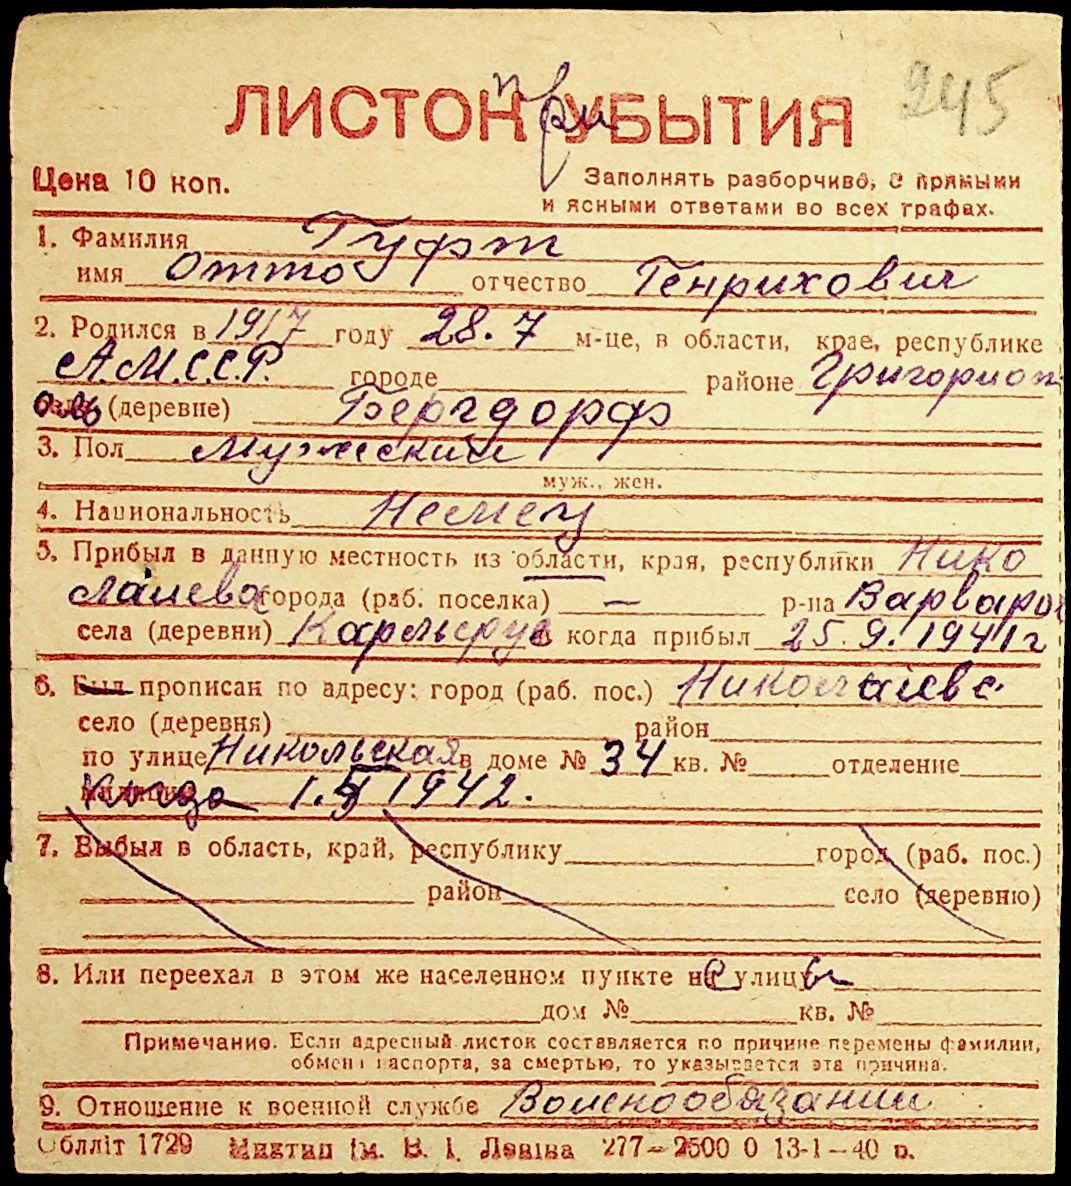 245
ЛИСТОК при УБЫТИЯ
Цена 10 коп.
Заполнять разборчиво, с прямыми
и ясными ответами во всех графах.
1. Фамилия Гуфт
имя Отто отчество Генрихович
2. Родился в 1917 году 28.7 м-це, в области, крае, республике
А.М.С.С.Р. городе районе Григориоп-
оль (деревне) Бергдорф
3. Пол Мужский
муж., жен.
4. Национальность Немец
5. Прибыл в данную местность из области, края, республики Нико
лаева города (раб. поселка) — р-на Варваров
села (деревни) Карльсруе и когда прибыл 25.9.1941г
6. Был прописан по адресу: город (раб. пос.) Николаеве
село (деревня) район
по улице Никольская в доме № 34 кв. № отделение
Когда 1.5 1942.
7. Выбыл в область, край, республику город (раб. пос.)
район село (деревню)
8. Или переехал в этом же населенном пункте с улицы
дом № кв. №
Примечание. Если адресный листок составляется по причине перемены фамилии,
обмена паспорта, за смертью, то указывается эта причина.
9. Отношение к военной службе Военообязаний
Обллiт 1729 Миктип iм. В. I. Ленiна 277—2500 0 13-1—40 р.